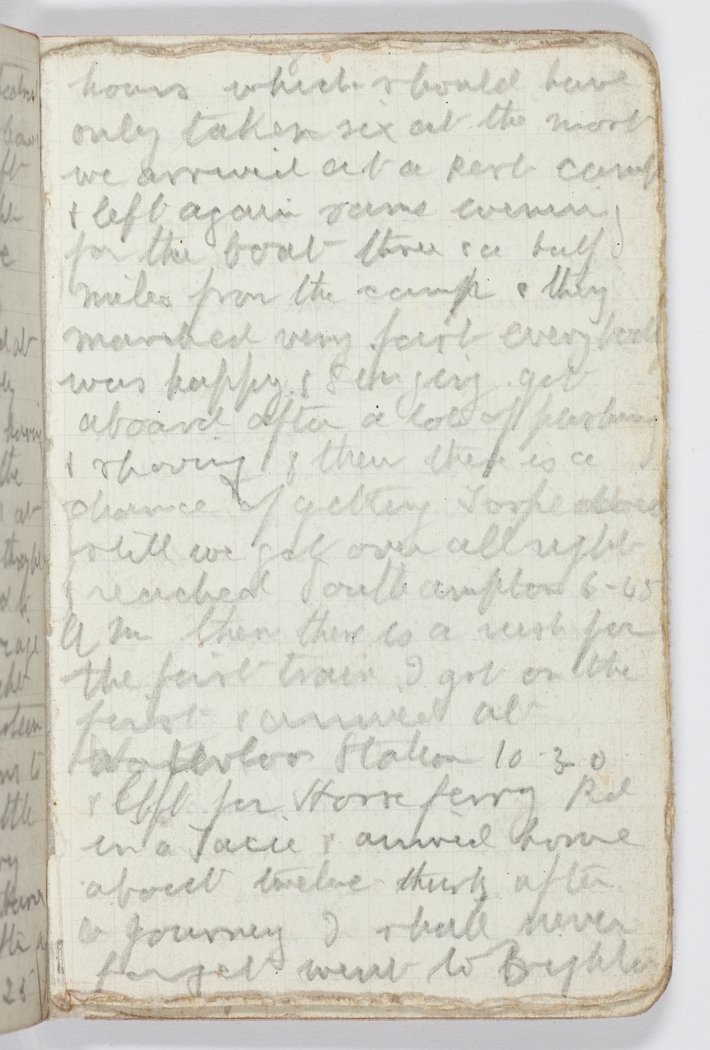 hours which should have
only taken six at the most
we arrived at a Rest camp
& left again same evening
for the boat three & a half
miles from the camp & they
marched very fast everybody
was happy & singing get
aboard after a lot of pushing
& shoving & then there is a
chance of getting Torpedoed
still we got over all right
& reached Southampton 6-45
A m then there is a rush for
the first train I got on the
first & arrived at
Waterloo Station 10-30
& left for Horseferry Rd
in a Tacie & arrived home
about twelve thirty after
a journey I shall never
forget went to Brighton